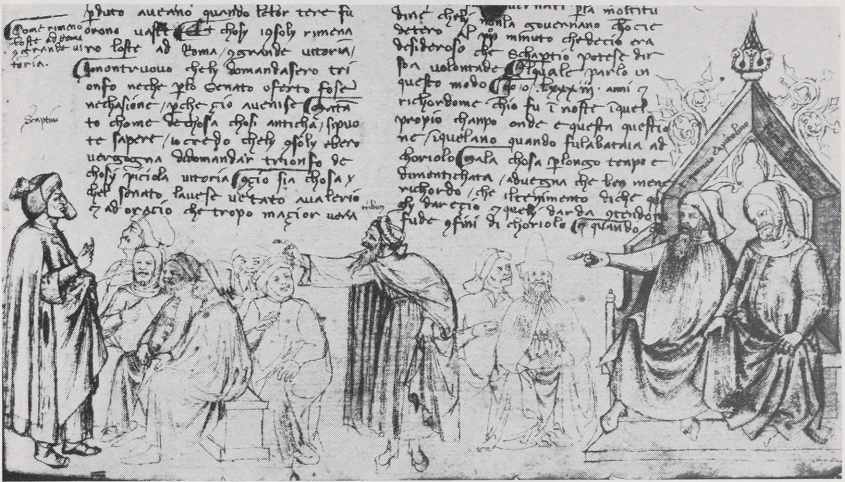 Come rimeno
loste ad roma
9 grande vi
toria.
Scaptio
pduto aveano quando letor tere fu
orono vaste Et chosy 19soly rimena
ro loste ad Roma, 9grande vitoria,
montruovo chely domandasero tri
onfo neche plo Senato oferto foser
nechasione, pche cio avenise
to chome dechosa chosi anticha, sipuo
te sapere, io credo chely 9soly ebero
vergogna ddomandar trionfo de
chosy piciola vitoria 9cio sia chosa y
chel senato lavese vetato avalerio
7 ad oracio che tropo magior
tribun
governati pla moltitu
dine chely nonla governano
detero Al piu minuto chedecio era
desideroso che Schaptio potese dir
soa volontade Elquale parlo in
questo modo Ego o .lxxxiii. anni 7
richordome chio fu i noste iquel
propio chanpo onde e questa questio
ne, iquelano quando fulabataia ad
choriolo Mala chosa plongo tenpo e
dimentichata, advegna che ben mene
richordo, che iltenimento diche
7 quely darda
fude 9fini di choriolo quando